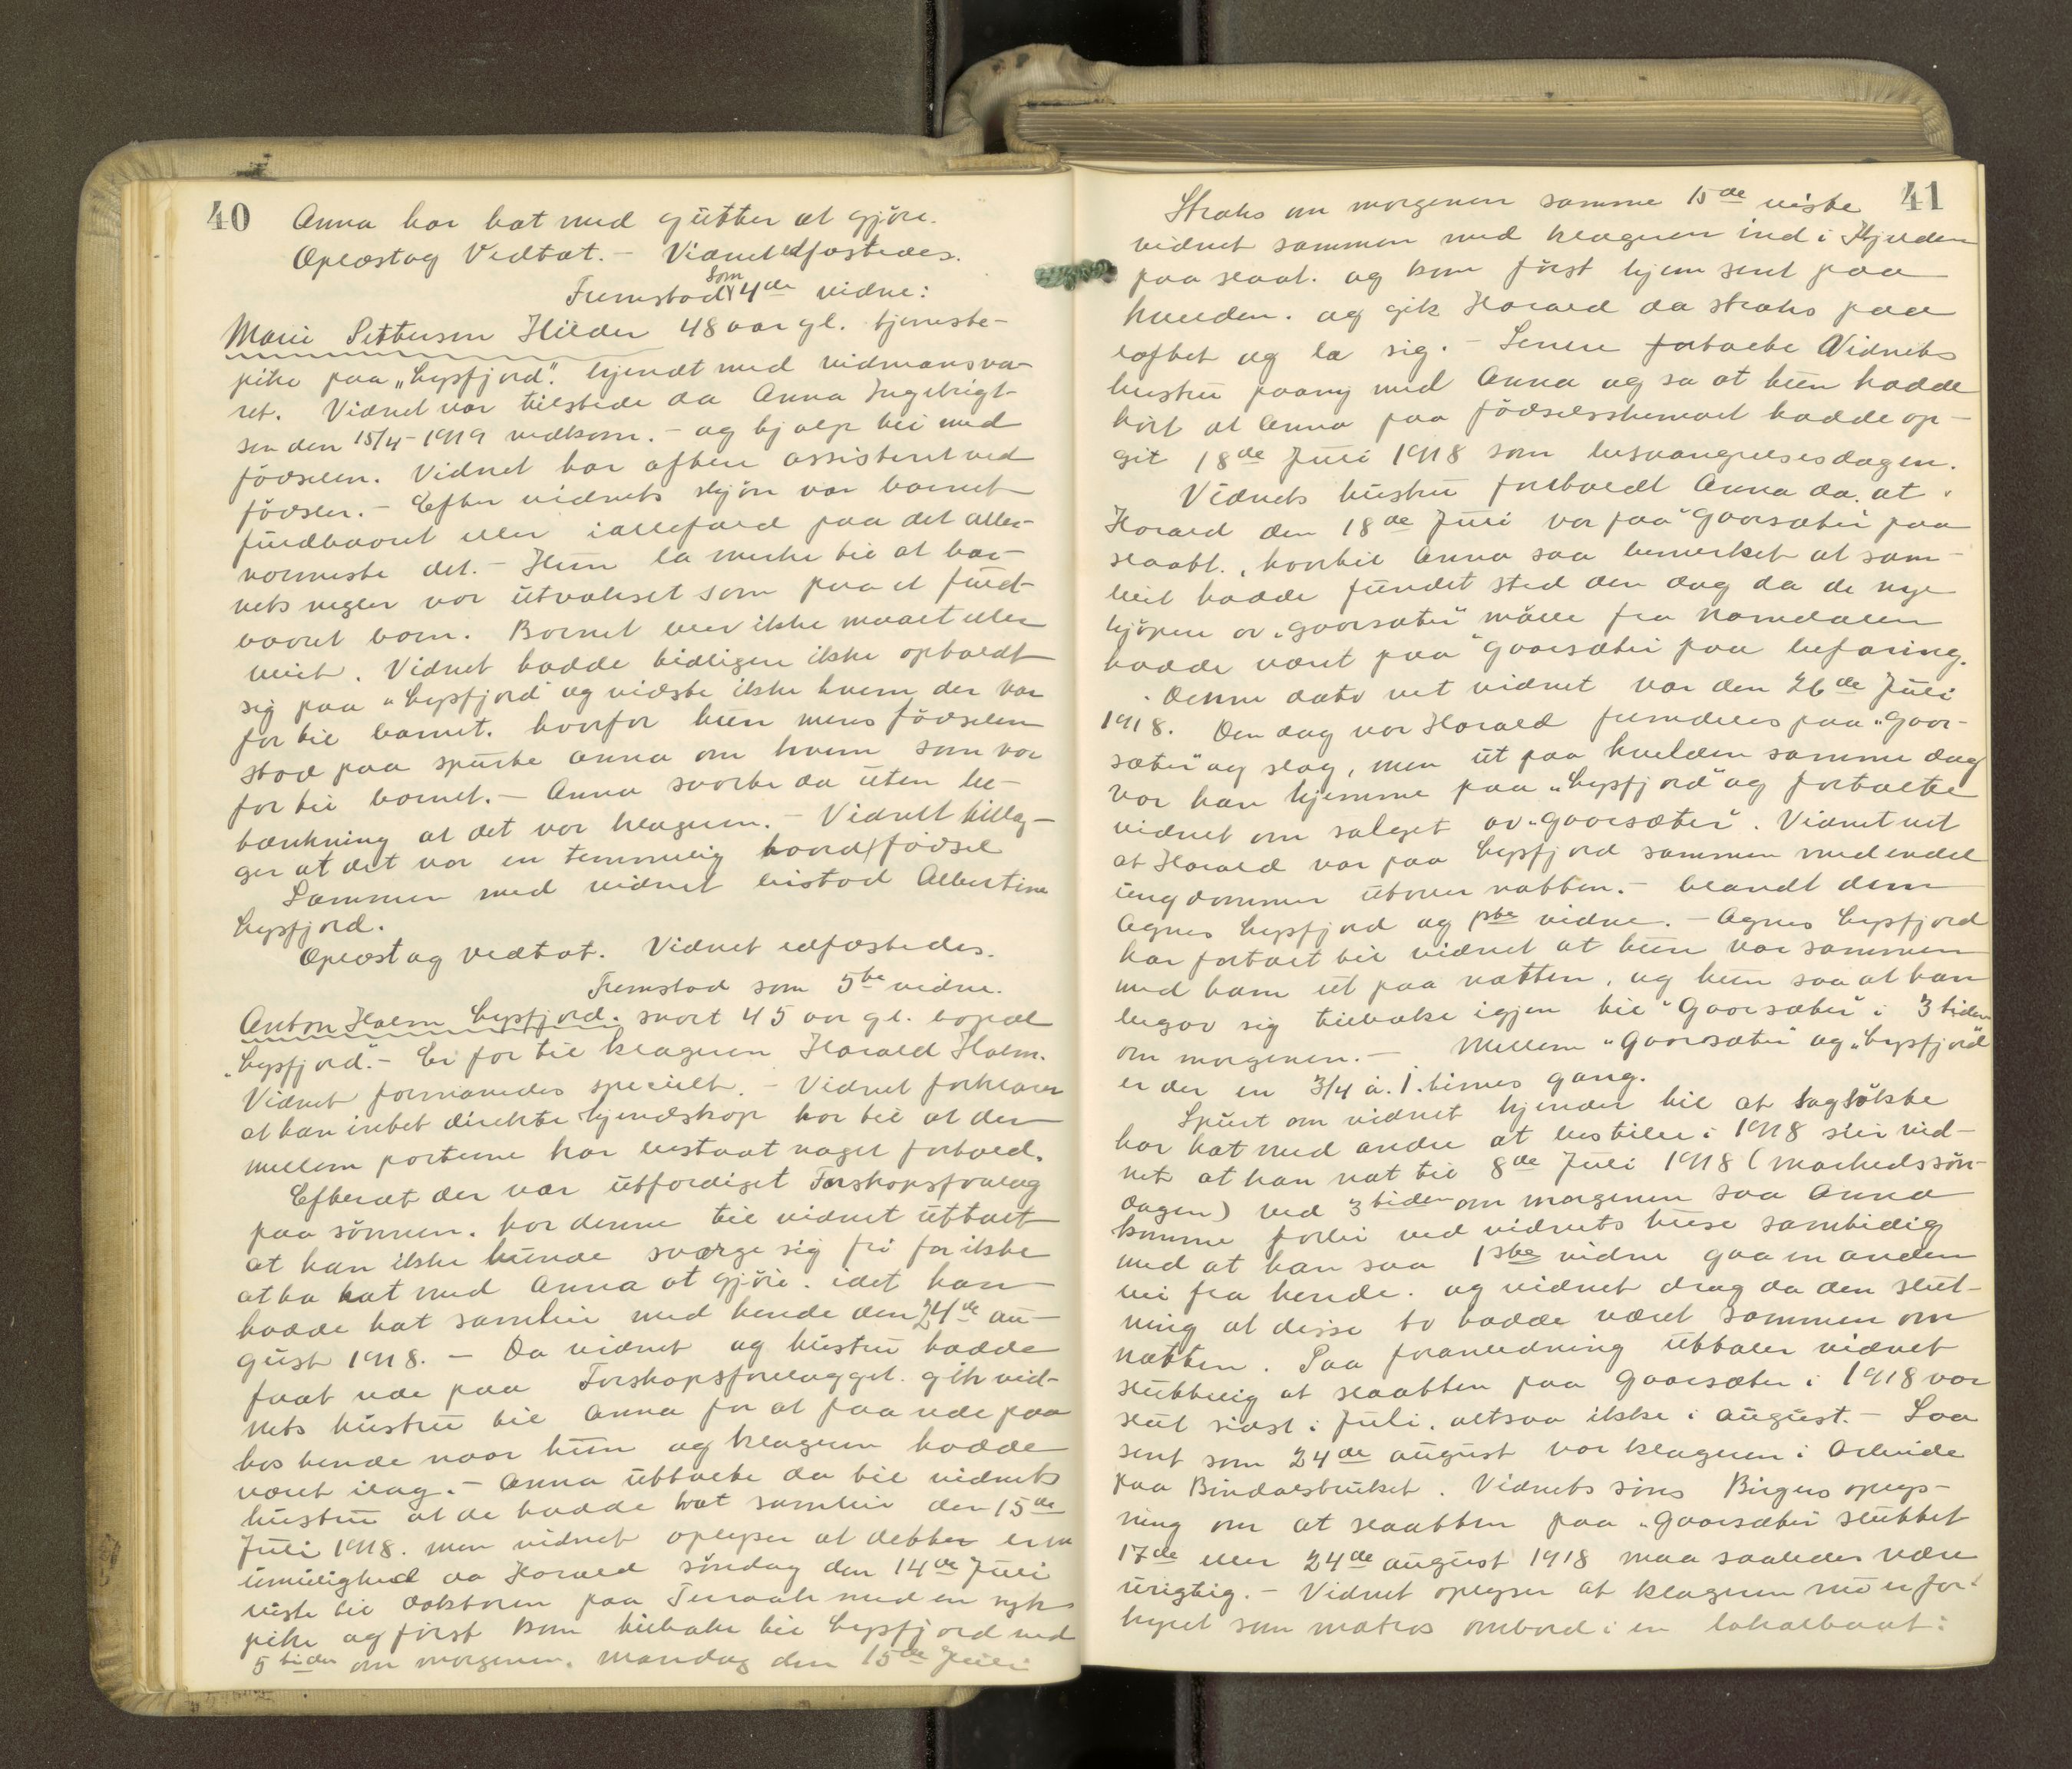 40
Anna har hat med gutter at gjöre.
Oplæst og Vedtat. – Vidnet edfæstedes.
Fremstod som 4de vidne:
Marie Pettersen Hilder 48 aar gl. tjeneste-
pike paa „Lysfjord". kjendt med vidneansva-
ret. Vidnet var tilstede da Anna Ingebrigt-
sen den 15/4-1919 nedkom. – og hjalp til med
födselen. Vidnet har oftere assisteret ved
födsler. – Efter vidnets skjön var barnet
fuldbaaret eller iallefald paa det aller-
nærmeste det. – Hun la merke til at bar-
nets negler var utvokset som paa et fuld-
baaret barn. Barnet blev ikke maalt eller
veiet. Vidnet hadde tidligere ikke opholdt
sig paa „Lysfjord" og vidste ikke hvem der var
far til barnet. hvorfor hun mens födselen
stod paa spurte Anna om hvem som var
far til barnet. – Anna svarte da uten be-
tænkning at det var klageren. – Vidnet tillæg-
ger at det var en temmelig haard födsel
Sammen med vidnet bistod Albertine
Lysfjord.
Oplæst og vedtat. Vidnet edfæstedes.
Fremstod som 5te vidne.
Anton Holm Lysfjord. snart 45 aar gl. bopæl
„Lysfjord". – Er far til klageren Harald Holm.
Vidnet formanedes specielt. – Vidnet forklarer
at han intet direkte kjendskap har til at der
mellem parterne har bestaat noget forhold.
Efterat der var utfærdiget Farskapsforelæg
paa sönnen. har denne til vidnet uttalt
at han ikke kunde sværge sig fri for ikke
at ha hat med Anna at gjöre. idet han
hadde hat samleie med hende den 24de au-
gust 1918. – Da vidnet og hustru hadde
faat rede paa Farskapsforelægget. gik vid-
nets hustru til Anna for at faa rede paa
hos hende naar hun og klageren hadde
været ilag. – Anna uttalte da til vidnets
hustru at de hadde hat samleie den 15de
Juli 1918. men vidnet oplyser at dette er en
umulighed da Harald söndag den 14de Juli
reiste til doktoren paa Terraak med en syk
pike og först kom tilbake til Lysfjord ved
5 tiden om morgenen. Mandag den 15de Juli
41
Straks om morgenen samme 15de reiste
vidnet sammen med klageren ind i Fjelden
paa slaat. og kom först hjem sent paa
kvelden. og gik Harald da straks paa
loftet og la sig. – Senere fortalte Vidnets
hustru paany med Anna og sa at hun hadde
hört at Anna paa födselsskemaet hadde op-
git 18de Juli 1918 som besvangrelsesdagen.
Vidnets hustru foreholdt Anna da. at
Harald den 18de Juli var paa "Gaarsæter" paa
slaatt., hvortil Anna saa bemerket at sam-
leiet hadde fundet sted den dag da de nye
kjöpere av „Gaarsæter" maatte fra Namdalen
hadde været paa "Gaarsæter" paa befaring.
Denne dato vet vidnet var den 26de Juli
1918. Den dag var Harald fremdeles paa „Gaar-
sæter" og slog, men ut paa kvelden samme dag
var han hjemme paa „Lysfjord" og fortalte
vidnet om salget av „Gaarsæter". Vidnet vet
at Harald var paa Lysfjord sammen med endel
ungdommer utover natten. – blandt dem
Agnes Lysfjord og 1ste vidne. – Agnes Lysfjord
har fortalt til vidnet at hun var sammen
med ham ut paa natten, og hun saa at han
begav sig tilbake igjen til "Gaarsæter" i 3 tiden
om morgenen. – Mellem "Gaarsæter" og „Lysfjord"
er der en 3/4 á. 1. times gang.
Spurt om vidnet kjender til at sagsökte
har hat med andre at bestille i 1918 sier vid-
net at han nat til 8de Juli 1918 (Markedssön-
dagen) ved 3 tiden om morgenen saa Anna
komme forbi ved vidnets huse samtidig
med at han saa 1ste vidne gaa en anden
vei fra hende. og vidnet drog da den slut-
ning at disse to hadde været sammen om
natten. Paa foranledning uttaler vidnet
sluttelig at slaatten paa Gaarsæter i 1918 var
slut sidst i Juli. altsaa ikke i august. – Saa
sent som 24de august var klageren i Arbeide
paa Bindalsbruket. Vidnets söns Birgers oplys-
ning om at slaatten paa „Gaarsæter" sluttet
17de eller 24de august 1918 maa saaledes være
urigtig. – Vidnet oplyser at klageren nu er for-
hyret som matros ombord i en lokalbaat: